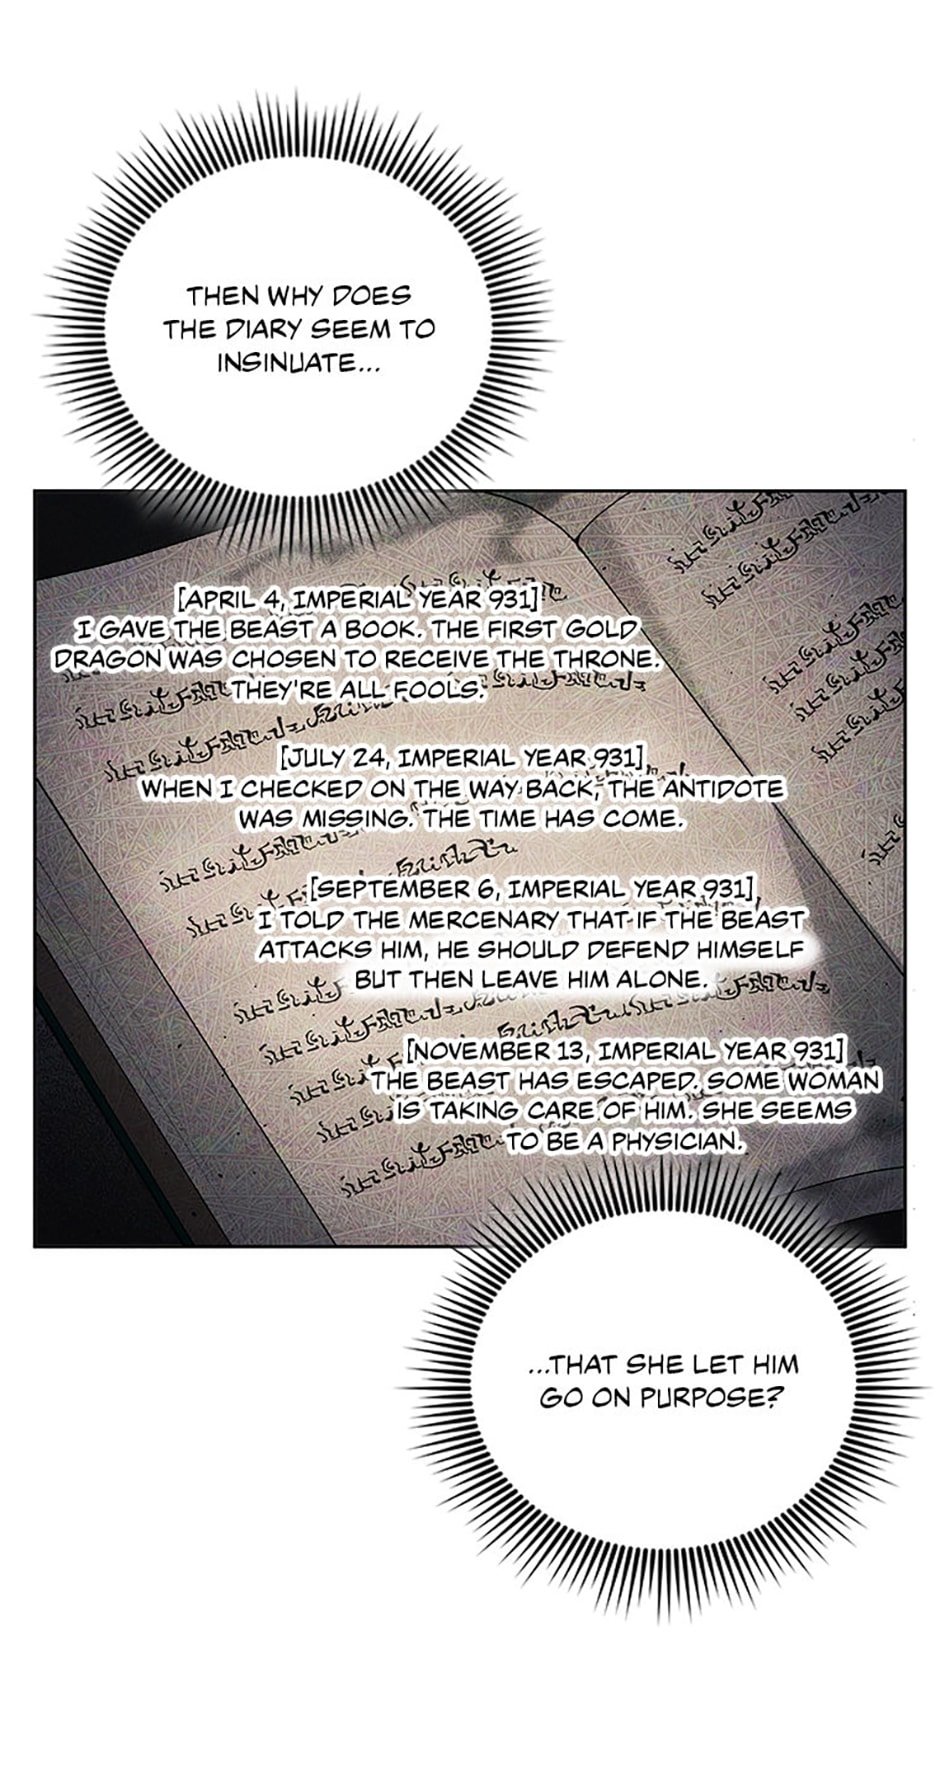 THEN WHY DOES
THE DIARY SEEM TO
INSINUATE...
[APRIL 4, IMPERIAL YEAR 931]
I GAVE THE BEAST A BOOK. THE FIRST GOLD
DRAGON WAS CHOSEN TO RECEIVE THE THRONE.
THEY'RE ALL FOOLS.
[JULY 24, IMPERIAL YEAR 931]
WHEN I CHECKED ON THE WAY BACK, THE ANTIDOTE
WAS MISSING. THE TIME HAS COME.
[SEPTEMBER 6, IMPERIAL YEAR 931]
I TOLD THE MERCENARY THAT IF THE BEAST
ATTACKS HIM, HE SHOULD DEFEND HIMSELF
BUT THEN LEAVE HIM ALONE.
[NOVEMBER 13, IMPERIAL YEAR 931]
THE BEAST HAS ESCAPED. SOME WOMAN
IS TAKING CARE OF HIM. SHE SEEMS
TO BE A PHYSICIAN.
...THAT SHE LET HIM
GO ON PURPOSE?